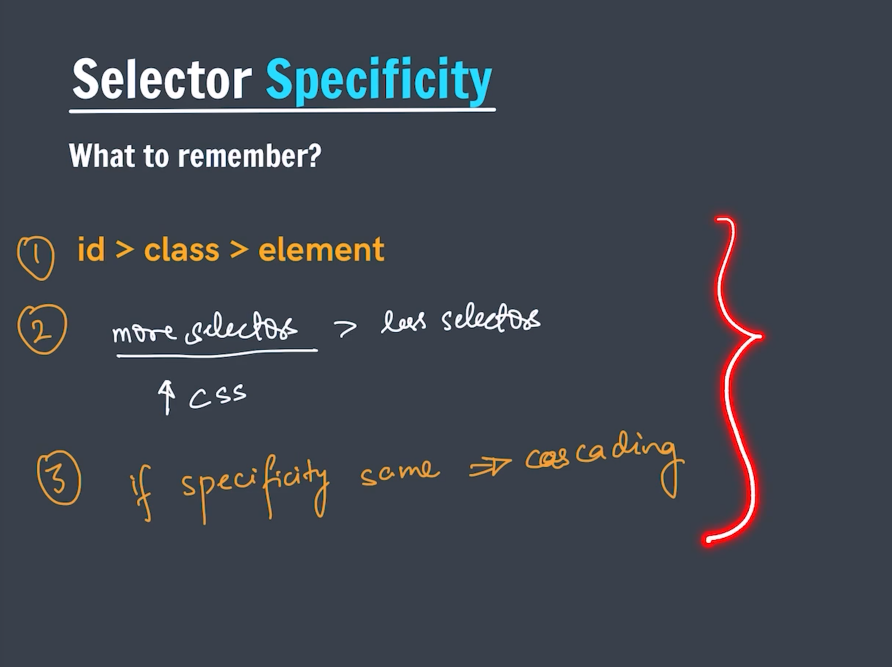 Selector Specificity
What to remember?
① id > class > element
② more selectors > less selectors
↑ CSS
③ if specificity same ⇒ cascading